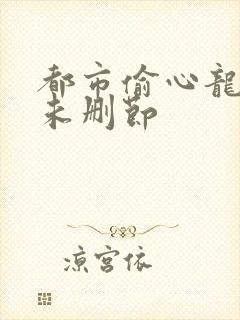 都市偷心龍
未删節
凉宮依